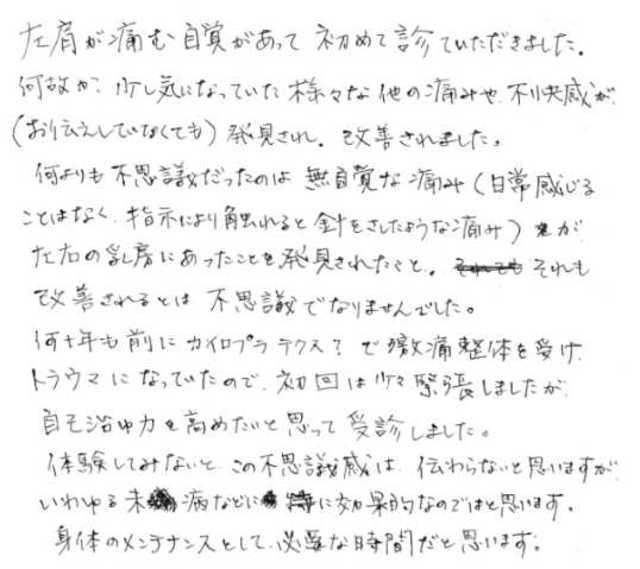 左肩が痛む自覚があって初めて診ていただきました。
何故か、少し気になっていた様々な他の痛みや、不快感が、
(お伝えしていなくても)発見され、改善されました。
何よりも不思議だったのは無自覚な痛み(日常感じる
ことはなく、指示により触れると針をさしたような痛み)が
左右の乳房にあったことを発見されたこと。それも
改善されるとは不思議でなりませんでした。
何十年も前にカイロプラテクス?で激痛整体を受け、
トラウマになっていたので、初回は少々緊張しましたが、
自己治ゆ力を高めたいと思って受診しました。
体験してみないと、この不思議感は、伝わらないと思いますが、
いわゆる未病などに特に効果的なのではと思います。
身体のメンテナンスとして、必要な時間だと思います。